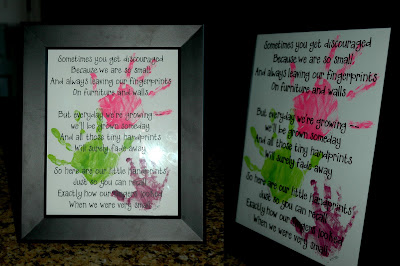 Sometimes you get discouraged
Because we are so small
And always leaving our fingerprints
On furniture and walls.
But everyday we're growing
we'll be grown someday
And all those tiny handprints
Will surely fade away
So here are our little handprints
Just so you can recall
Exactly how our fingers looked
When we were very small.
Sometimes you get discouraged
Because we are so small
And always leaving our fingerprints
On furniture and walls.
But everyday we're growing
we'll be grown someday
And all those tiny handprints
Will surely fade away
So here are our little handprints
Just so you can recall
Exactly how our fingers looked
When we were very small